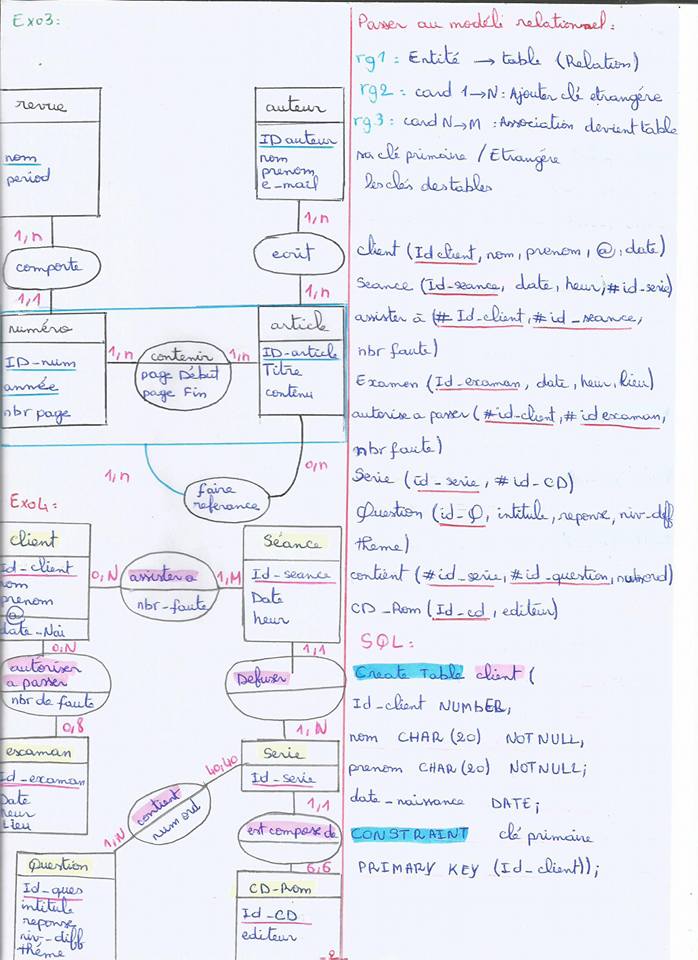 Exo3:
revue
nom
period
auteur
ID auteur
nom
prenom
e_mail
1,n
1,n
comporte
ecrit
1,1
1,n
numéro
ID_num
année
nbr page
1,n
contenir
page Début
page Fin
1,n
article
ID_article
Titre
contenu
1,n
0,n
faire
referance
Exo4:
client
Id_client
nom
prenom
@
date_Nai
0,N
assister a
nbr_faute
1,M
Séance
Id_seance
Date
heur
0,N
autoriser
a passer
nbr de faute
0,8
1,1
Defuser
1,N
escaman
Id_examan
Date
heur
Lieu
Serie
Id_serie
40,40
contient
num ord
1,N
1,1
est compose de
6,6
Question
Id_ques
intitule
reponse
niv_diff
théme
CD-Rom
Id_CD
editeur
_2_
Passer au modéli relationnel:
rg1: Entité → table (Relation)
rg2: card 1→N: Ajouter clé etrangére
rg3: card N→M : Association devient table
sa clé primaire / Etrangére
les clés des tables
client (Id client, nom, prenom, @, date)
Seance (Id_seance, date, heur, #id_serie)
assister à (# Id_client, # id_seance,
nbr faute)
Examen (Id_examan, date, heur, lieu)
autorise a passer (#id_client, # id escaman,
nbr faute)
Serie (id_serie, # id_CD)
Question (id_Q, intitule, reponse, niv_diff
theme)
contient (#id_serie, #id_question, num ord)
CD_Rom (Id_cd, editeur)
SQL:
Create Table client (
Id_client NUMBER,
nom CHAR (20) NOT NULL,
prenom CHAR (20) NOT NULL;
date_naissance DATE;
CONSTRAINT clé primaire
PRIMARY KEY (Id_client));